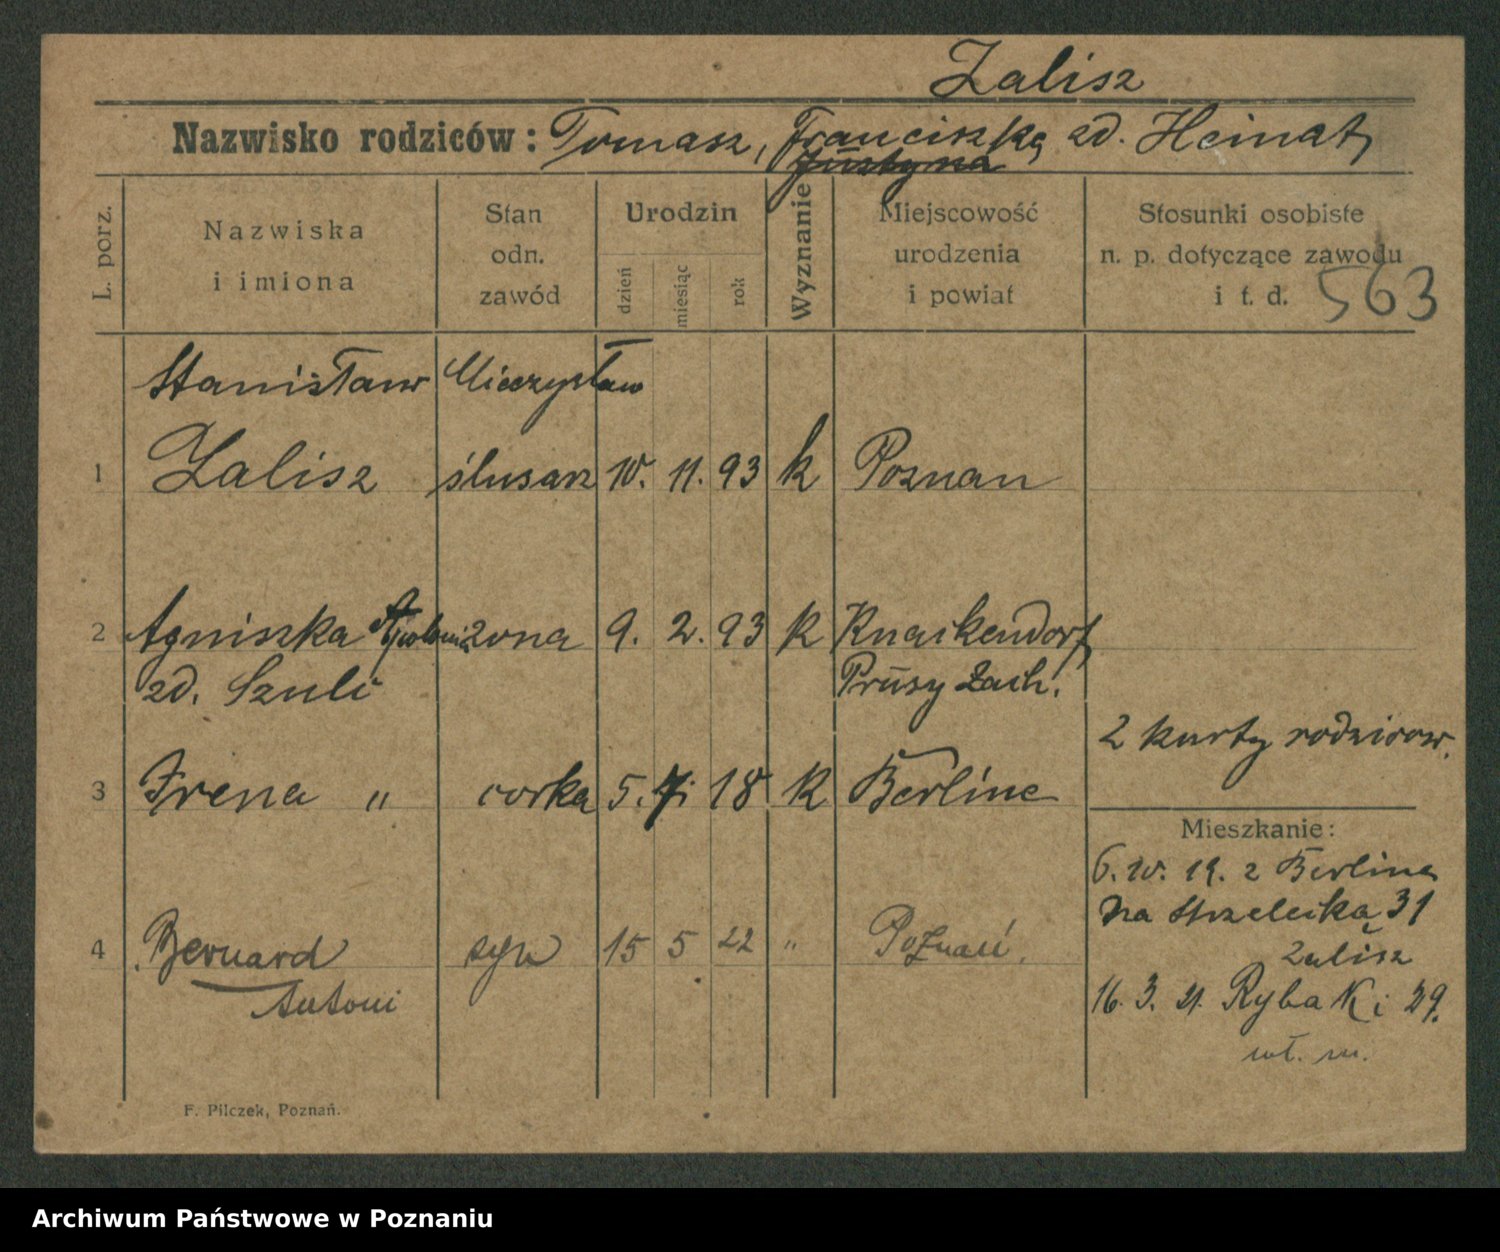 Zalisz
Nazwisko rodziców: Tomasz, Franciszka zd. Heinat
Justyna
L. porz.
Nazwiska i imiona
Stan odn. zawód
Urodzin
dzień miesiąc rok
Wyznanie
Miejscowość urodzenia i powiat
Stosunki osobiste n. p. dotyczące zawodu i t. d.
563
Stanisław Mieczysław
1 Zalisz ślusarz 10. 11. 93 k Poznan
2 Agniszka Apolonia zona 9. 2. 93 k Knackendorf
zd. Szuli Prusy Zach.
2 karty rodzicow.
3 Irena " corka 5. 7. 18 k Berline
Mieszkanie:
6. 10. 19. z Berlina
na Strzelecka 31
4 Bernard syn 15 5 22 " Poznań.
Zalisz
Antoni
16. 3. 21. Rybaki 29.
wł. m.
F. Pilczek, Poznań.
Archiwum Państwowe w Poznaniu